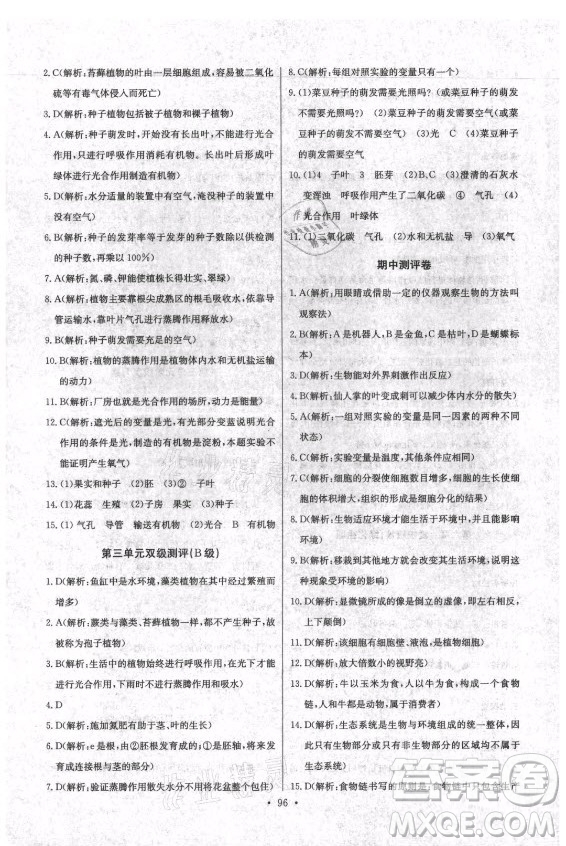 2. C(解析:苔藓植物的叶由一层细胞组成,容易被二氧化
硫等有毒气体侵入而死亡)
3. D(解析:种子植物包括被子植物和裸子植物)
4. A(解析:种子萌发时,开始没有长出叶,不能进行光合
作用,只进行呼吸作用消耗有机物。长出叶后形成叶
绿体进行光合作用制造有机物)
5. D(解析:水分适量的装置中有空气,淹没种子的装置
中没有空气)
6. B(解析:种子的发芽率等于发芽的种子数除以供检测
的种子数,再乘以100%)
7. A(解析:氮、磷、钾能使植株长得高大、翠绿)
8. D(解析:植物主要靠根尖成熟区的根毛吸收水,依靠
导管运输水,靠叶片气孔进行蒸腾作用释放水)
9. B(解析:种子萌发需要充足的空气)
10. B(解析:植物的蒸腾作用是植物体内水和无机盐运输
的动力)
11. B(解析:厂房也就是制造有机物,机器是叶绿体,能量)
12. C(解析:遮光后的变量是光,有光部分变蓝说明光合
作用的条件是光,制造的有机物是淀粉,本题实验不
能证明产生氧气)
13. (1)果实和种子 (2)胚 (3)② (4)子叶
14. (1)花蕊 生殖 (2)子房 果实 (3)种子
15. (1)气孔 导管 输送有机物 (2)光合 B 有机物
第三单元双级测评(B级)
1. D(解析:鱼缸中是水环境,藻类植物在中过繁殖而
增多)
2. A(解析:蕨类与藻类、苔藓植物一样,都不产生种子,故
被称为孢子植物)
3. B(解析:生活中的植物始终进行呼吸作用,夜间不进
行光合作用,下雨时不进行蒸腾作用和吸水)
4. D
5. D(解析:施加氮肥有助于茎的生长)
6. D(解析:e是根,由②胚根发育成的;①是胚轴,将来发
育成连接根与茎的部分)
7. B(解析:验证蒸腾作用散失水分不用将花盆整个包住)
8. C(解析:每组对照实验的变量只有一个)
9. (1)菜豆种子的萌发需要光照吗?(或菜豆种子的
萌发不需要光照吗?) (2)菜豆种子的萌发需要空气(或
菜豆种子的萌发不需要空气) (3)光 C (4)菜豆种子
的萌发需要空气
10. (1)4 子叶 3 胚芽 (2)B,C (3)澄清的石灰水
变浑浊 呼吸作用产生了二氧化碳 ④ 气孔 (4)
光合作用 叶绿体
11. (1)二氧化碳 气孔 (2)水和无机盐 导 (3)氧气
期中测评卷
1. A(解析:用眼睛或借助一定的仪器观察生物的方法叫
观察法)
2. B(解析:A是机器人,B是仙鹤,C是枯叶,D是蝴蝶标
本)
3. D(解析:生物能对外界刺激作出反应)
4. B(解析:仙人掌的叶变成刺可以减少体内水分的散失)
5. A(解析:一组对照实验的变量是同一因素的两种不同
状态)
6. C(解析:实验变量是温度,其他条件应该相同)
7. C(解析:细胞的分裂使细胞数目增多,细胞的生长使细胞
的体积增大,组织的形成是细胞分化)
8. D(解析:生物适应环境才能生活于环境中)
9. B(解析:移栽树木改变了其生活环境,说明环境能影响
生物)
10. D(解析:显微镜所成的像是放大的虚像,即左右相反,
上下颠倒)
11. D(解析:该细胞有细胞壁、液泡,是植物细胞)
12. D(解析:放大倍数小的视野亮)
13. A(解析:牛以玉米为食,人以牛为食,构成一条食物
链,其中牛和人都属于消费者)
14. C(解析:生态系统是生物与环境组成的统一整体,因
此只有生物部分或者非生物部分的区域均不属于
生态系统)
15. D(解析:食物链书写的原则是:食物链中只包含生产
96
答案圈